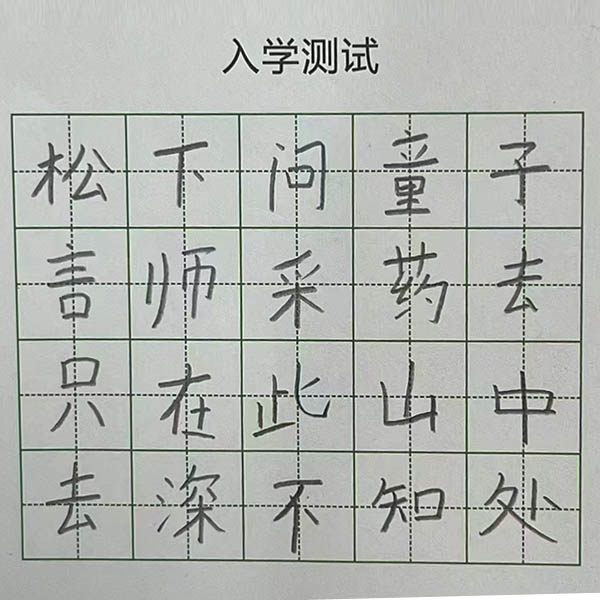 入学测试
松下问童子
言师采药去
只在此山中
去深不知处